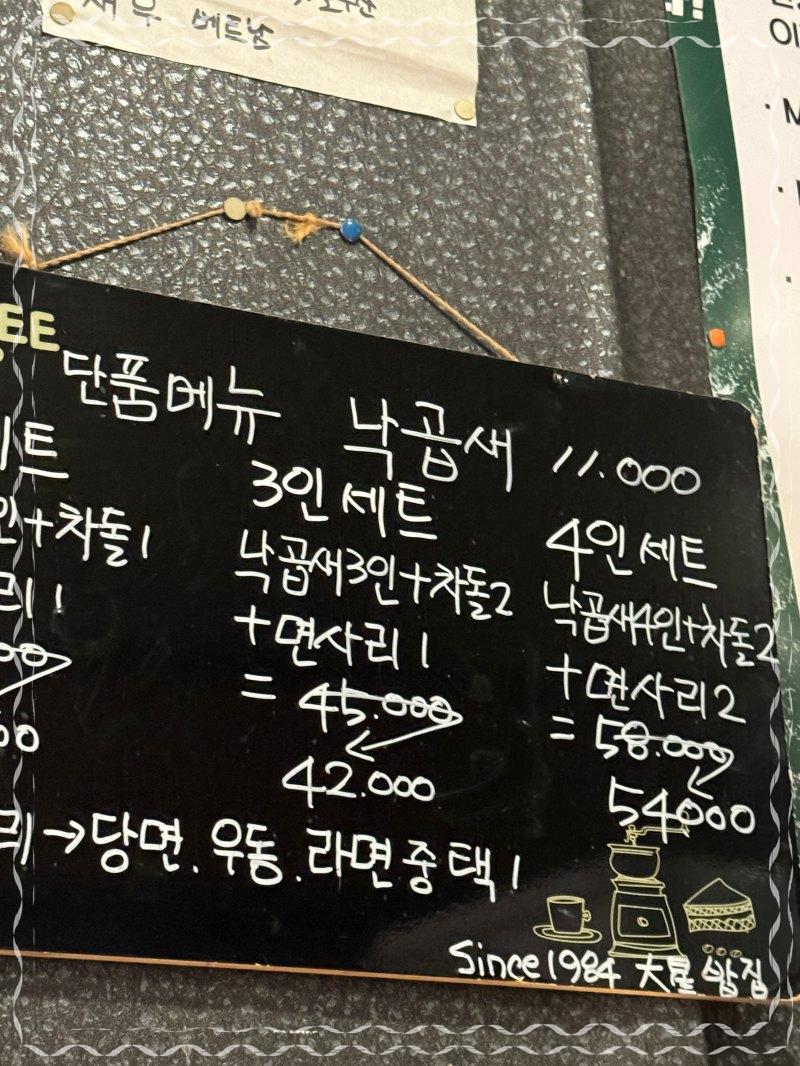 새우 베트남
EE
단품메뉴 낙곱새 11.000
세트
인+차돌1
리1
3인 세트
낙곱새3인+차돌2
+면사리1
= 45.000
42.000
4인 세트
낙곱새4인+차돌2
+면사리2
= 58.000
54000
리→당면.우동.라면중택1
Since1984 大星 밥집